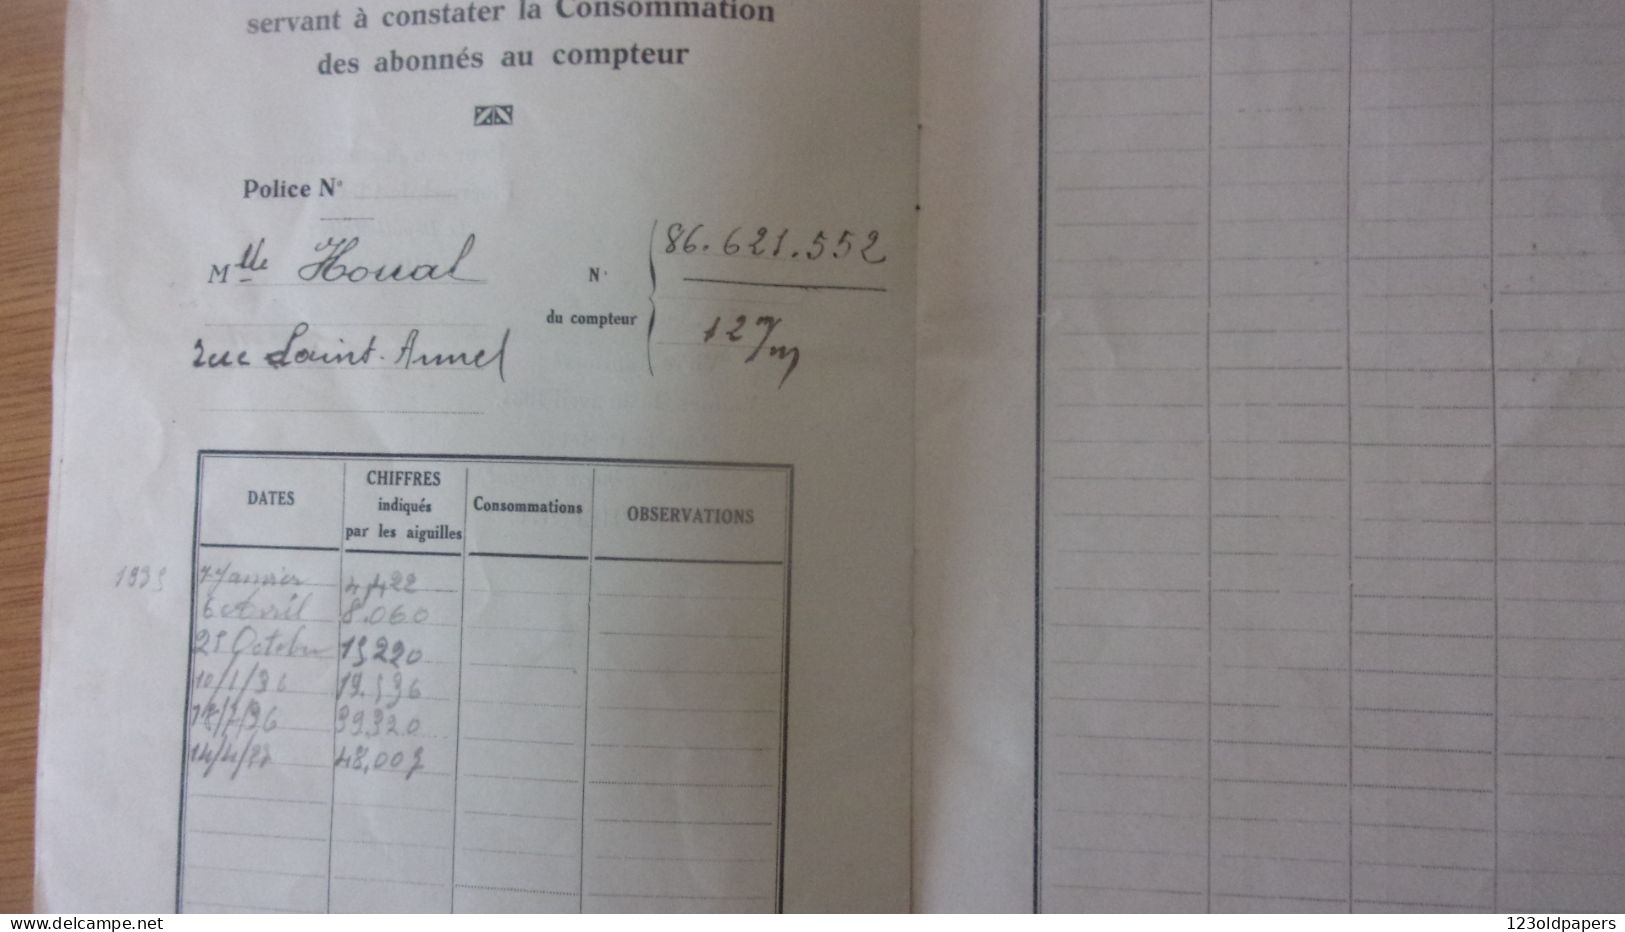 servant à constater la Consommation
des abonnés au compteur
Police N°
Mlle Houal
rue Saint-Armel
N°
du compteur
86.621.552
12 m/m
DATES
CHIFFRES
indiqués
par les aiguilles
Consommations
OBSERVATIONS
1935
7 Janvier 4,422
6 Avril 8.060
25 Octobre 15220
10/1/36 19.536
18/7/36 39320
14/4/37 48.007
delcampe.net
123oldpapers